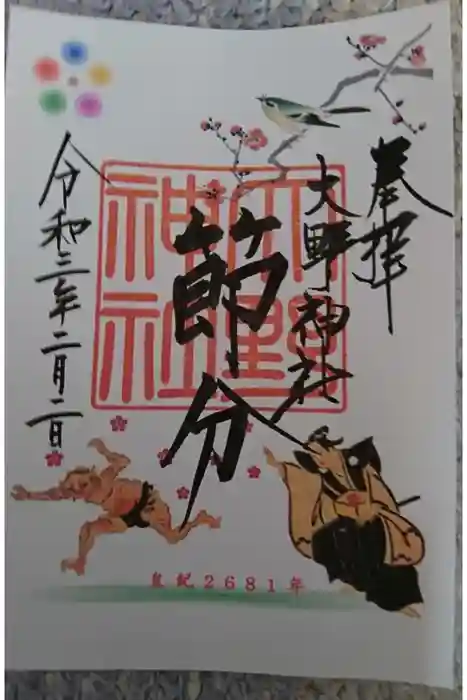 奉拝
大野神社
節分
令和三年二月二日
大野
神社
皇紀2681年